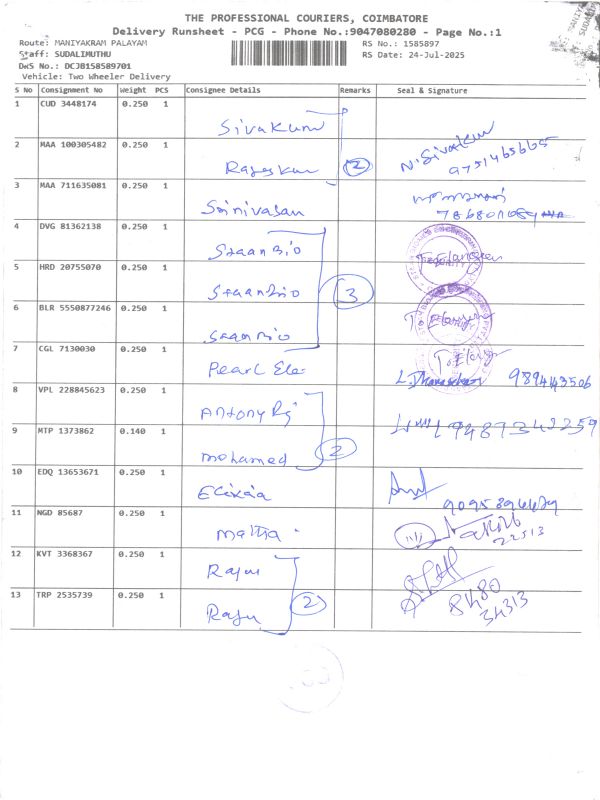 THE PROFESSIONAL COURIERS, COIMBATORE
Delivery Runsheet - PCG - Phone No.:9047080280 - Page No.:1
Route: MANIYAKRAM PALAYAM
RS No.: 1585897
Staff: SUDALIMUTHU
RS Date: 24-Jul-2025
DWS No.: DCJB158589701
Vehicle: Two Wheeler Delivery
S No Consignment No Weight PCS Consignee Details Remarks Seal & Signature
1 CUD 3448174 0.250 1 Sivakumar
2 MAA 100305482 0.250 1 Rajeskum 2 N. Sivakum 9751465665
3 MAA 711635081 0.250 1 Srinivasan
4 DVG 81362138 0.250 1 Staan Bio
5 HRD 20755070 0.250 1 Staan Bio 3
6 BLR 5550877246 0.250 1 Staan Bio
7 CGL 7130030 0.250 1 Pearl Ele
8 VPL 228845623 0.250 1 Antony Rj
9 MTP 1373862 0.140 1 mohamed 2
10 EDQ 13653671 0.250 1
11 NGD 85687 0.250 1 22513
12 KVT 3368367 0.250 1 Rajui
13 TRP 2535739 0.250 1 Raju 2 8480 34313